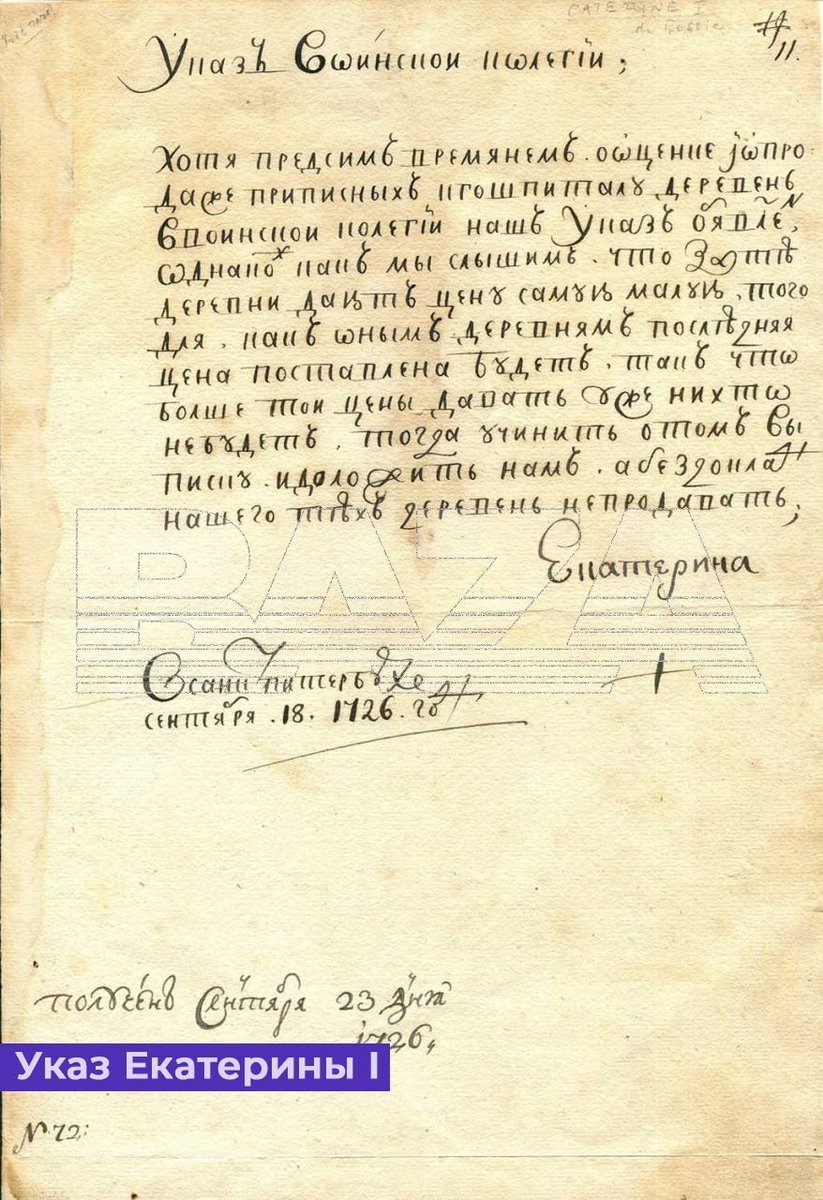 CATERINE I
de Russie
11.
Указъ Свѡинскои колегіи;
Хотя предсимъ времянемъ. оѡценке іѡпро
даже приписныхъ кгошпиталу деревень
Своинскои колегіи нашъ Указъ обявле,
ѡднако какъ мы слышимъ. что Заті
деревни даютъ цену самую малую, того
для, какъ ѡнымъ деревнямъ послѣдняя
цена поставлена будетъ. такъ чтѡ
болше тои цены давать уже никтѡ
небудетъ, тогда учинить отомъ вы
писку. идоложить намъ. абездокла
нашего тѣхъ деревень непродавать;
Екатерина
BAZA
Всанктпитербурхе
сентября. 18. 1726. го
получень Сентября 23 дня
1726.
Указ Екатерины I
№ 72: